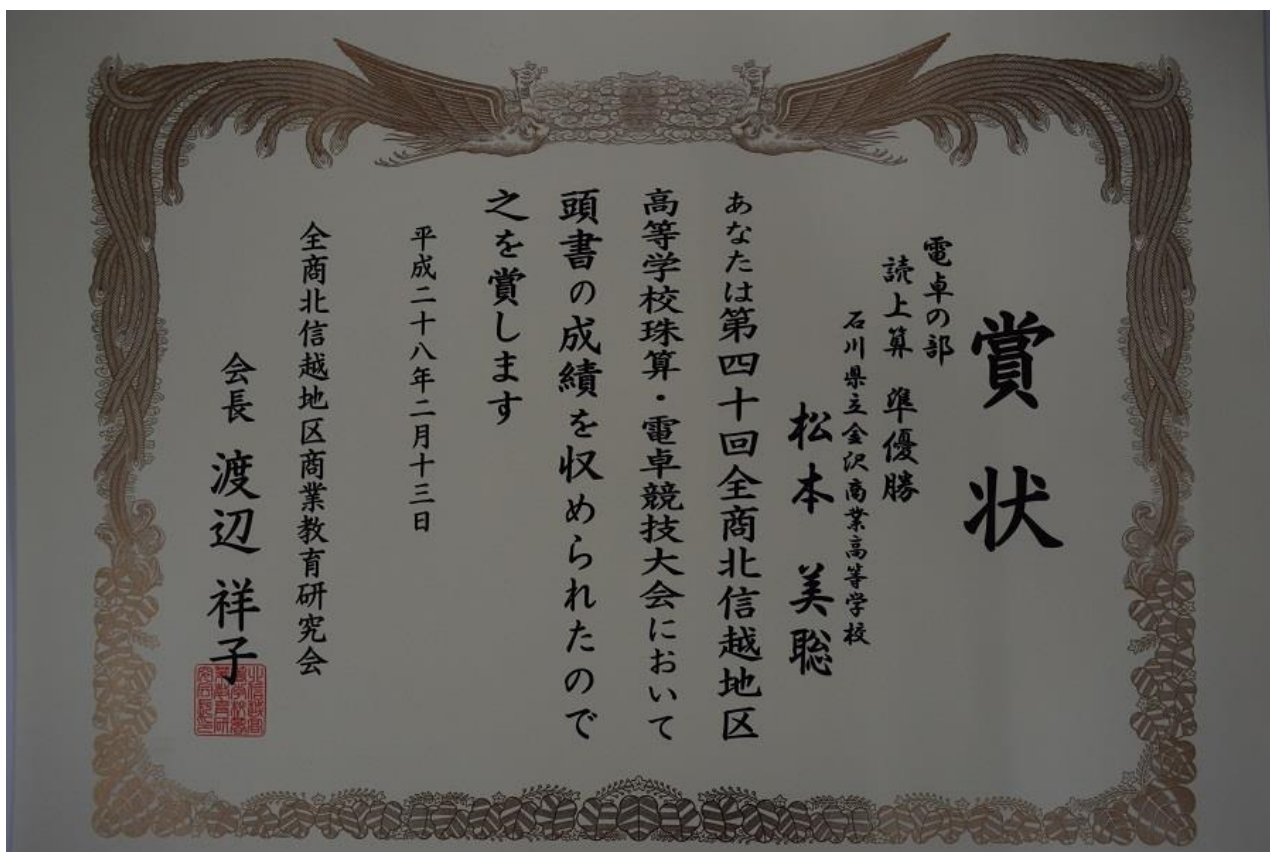 賞状
電卓の部
読上算 準優勝
石川県立金沢商業高等学校
松本 美聡
あなたは第四十回全商北信越地区
高等学校珠算・電卓競技大会において
頭書の成績を収められたので
之を賞します
平成二十八年二月十三日
全商北信越地区商業教育研究会
会長 渡辺 祥子